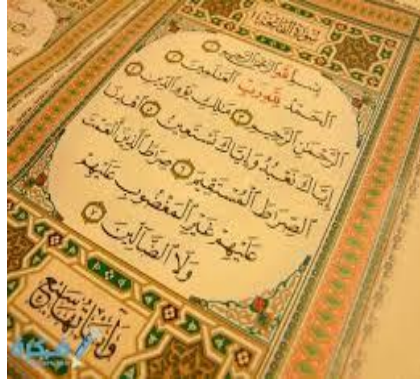 سورة الفاتحة
بِسْمِ اللَّهِ الرَّحْمَٰنِ الرَّحِيمِ ١
الْحَمْدُ لِلَّهِ رَبِّ الْعَالَمِينَ ٢
الرَّحْمَٰنِ الرَّحِيمِ ٣ مَالِكِ يَوْمِ الدِّينِ ٤
إِيَّاكَ نَعْبُدُ وَإِيَّاكَ نَسْتَعِينُ ٥ اهْدِنَا
الصِّرَاطَ الْمُسْتَقِيمَ ٦ صِرَاطَ الَّذِينَ أَنْعَمْتَ
عَلَيْهِمْ غَيْرِ الْمَغْضُوبِ عَلَيْهِمْ
وَلَا الضَّالِّينَ ٧
وآياتها سبع